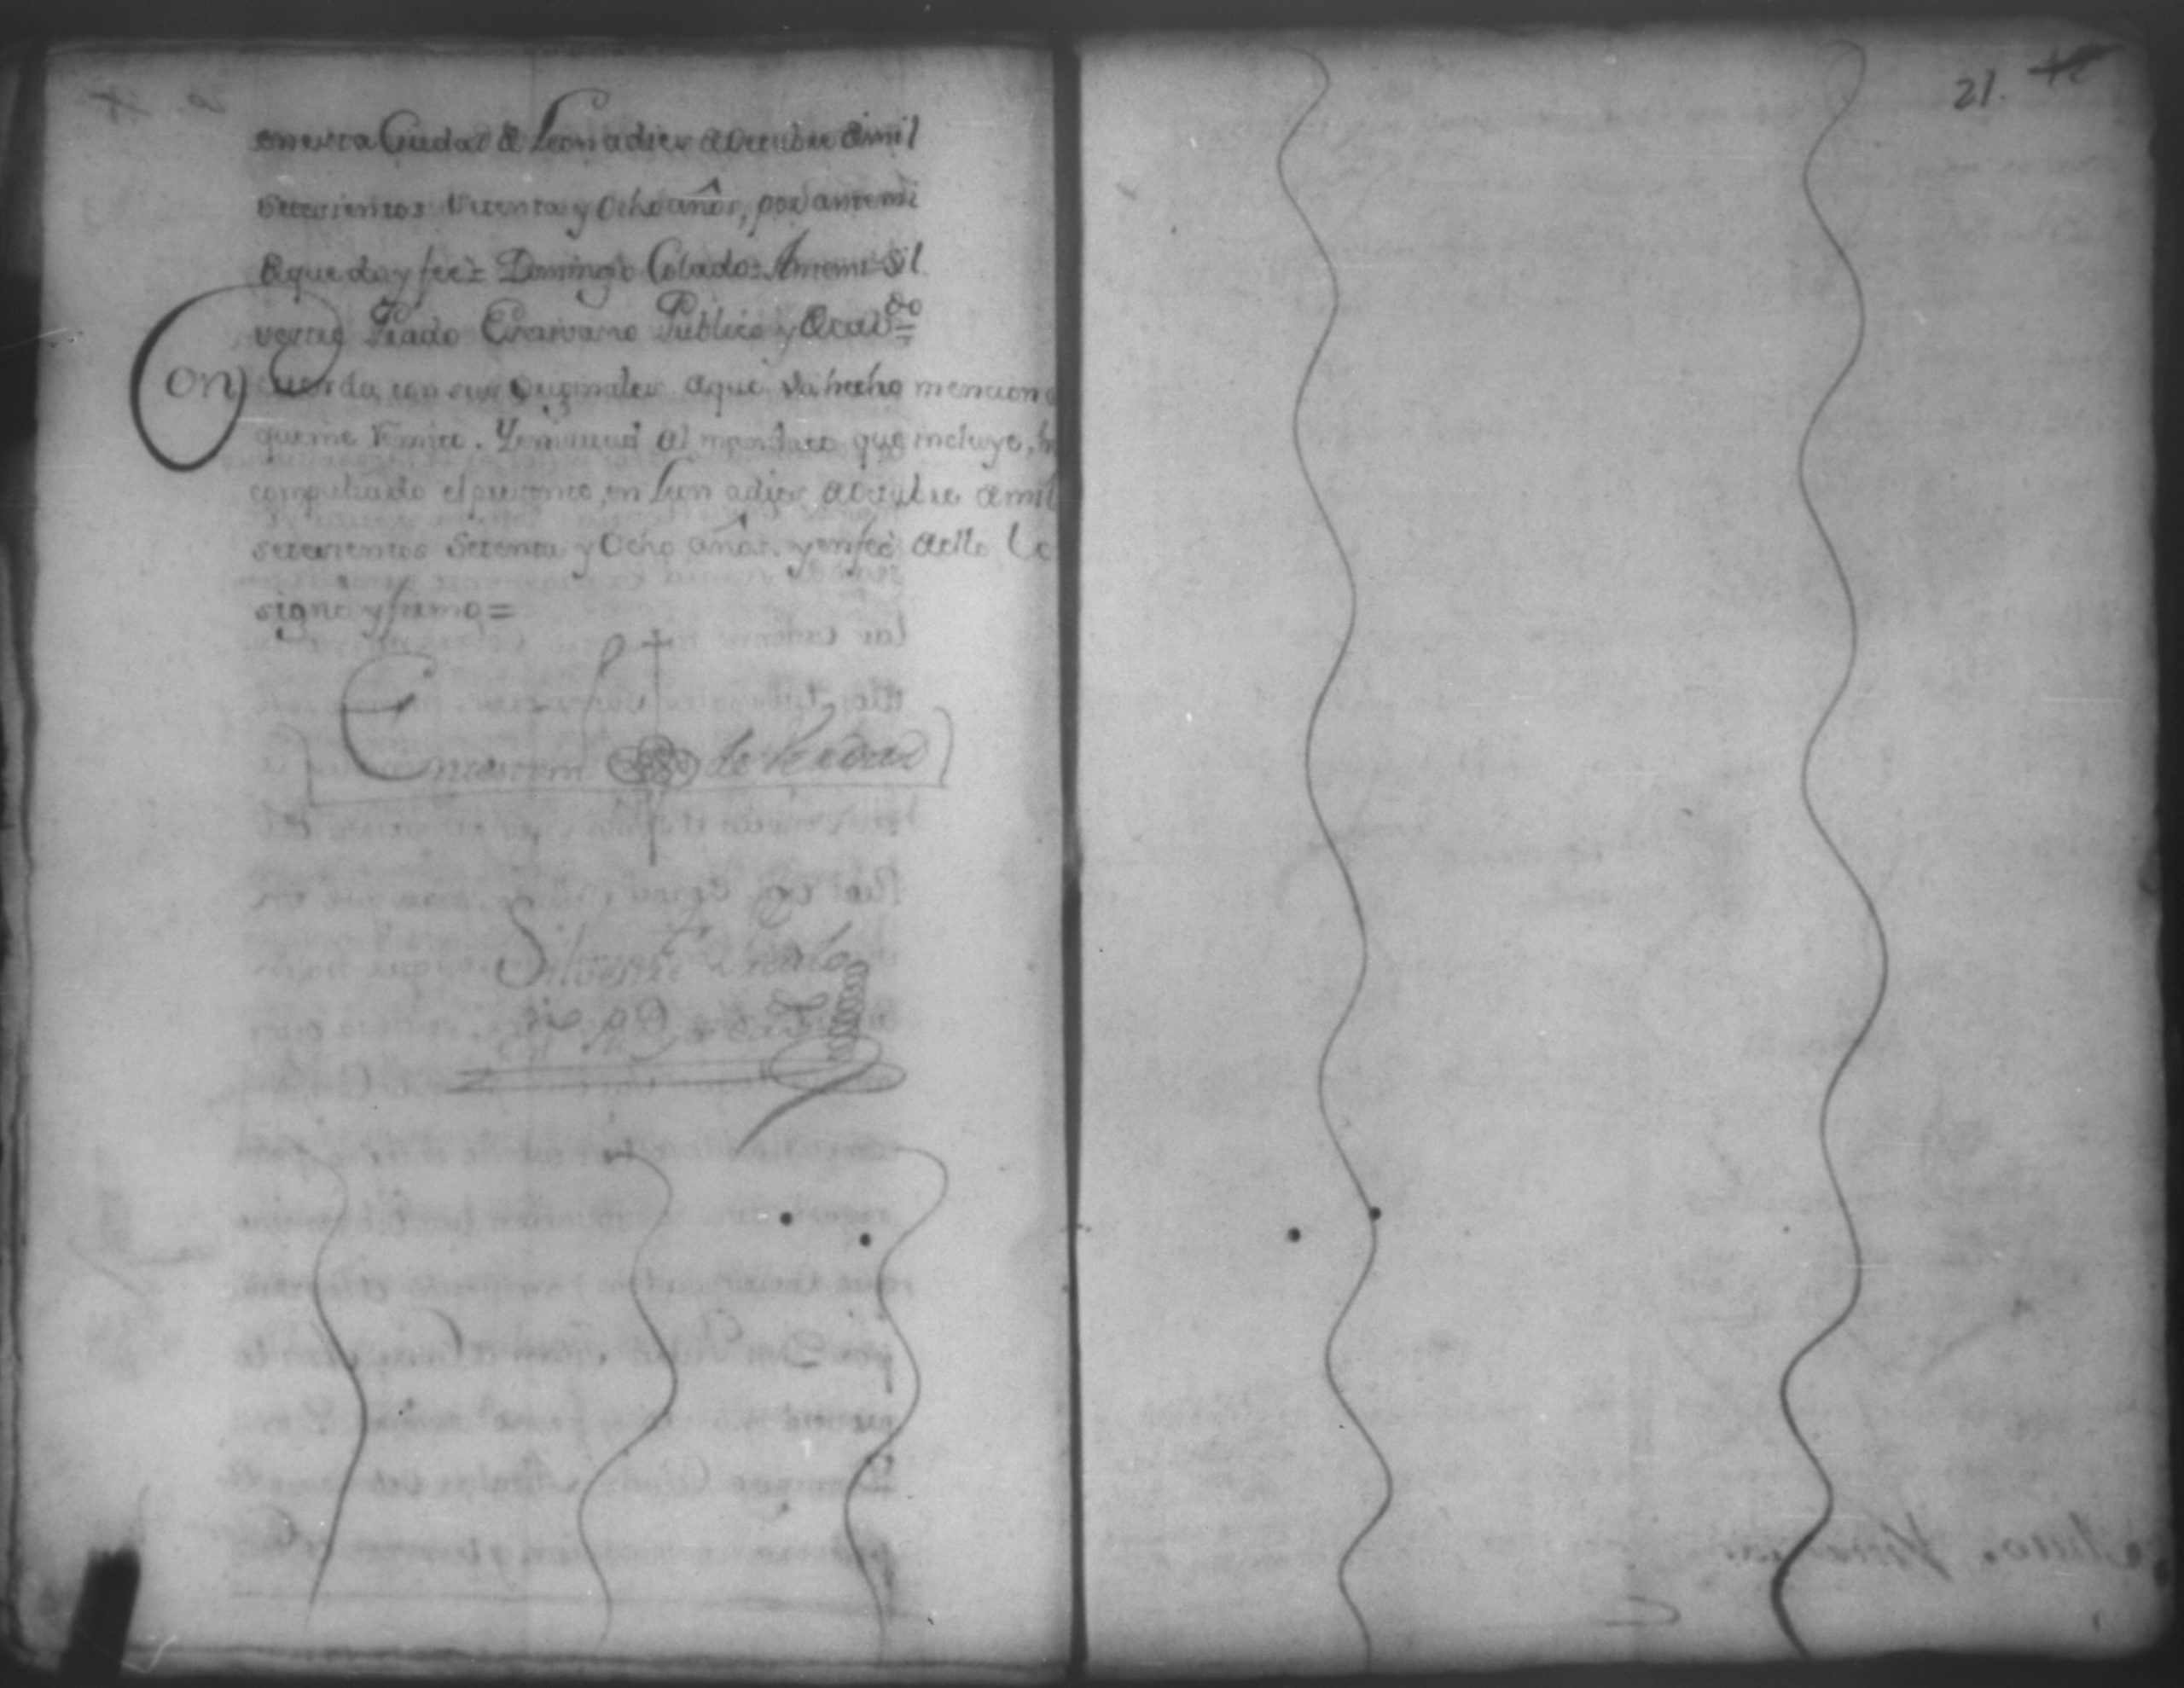 en esta Ciudad de Leon a dies de Octubre de mil
setecientos setenta y Ocho años, por ante mi
de que doy fee = Domingo Colado = Ante mi = Sil
vestre Prado Escrivano Publico y de Cav.do =
Concuerda con sus Originales de que va hecho mencion
que me remito. Y en virtud del mandato que incluye,
compulsado el presente, en Leon a dies de Octubre de mil
setecientos Setenta y Ocho años. y en fee de ello Lo
signo y firmo =
En testim.o de Verdad
Silvestre Prado
21.